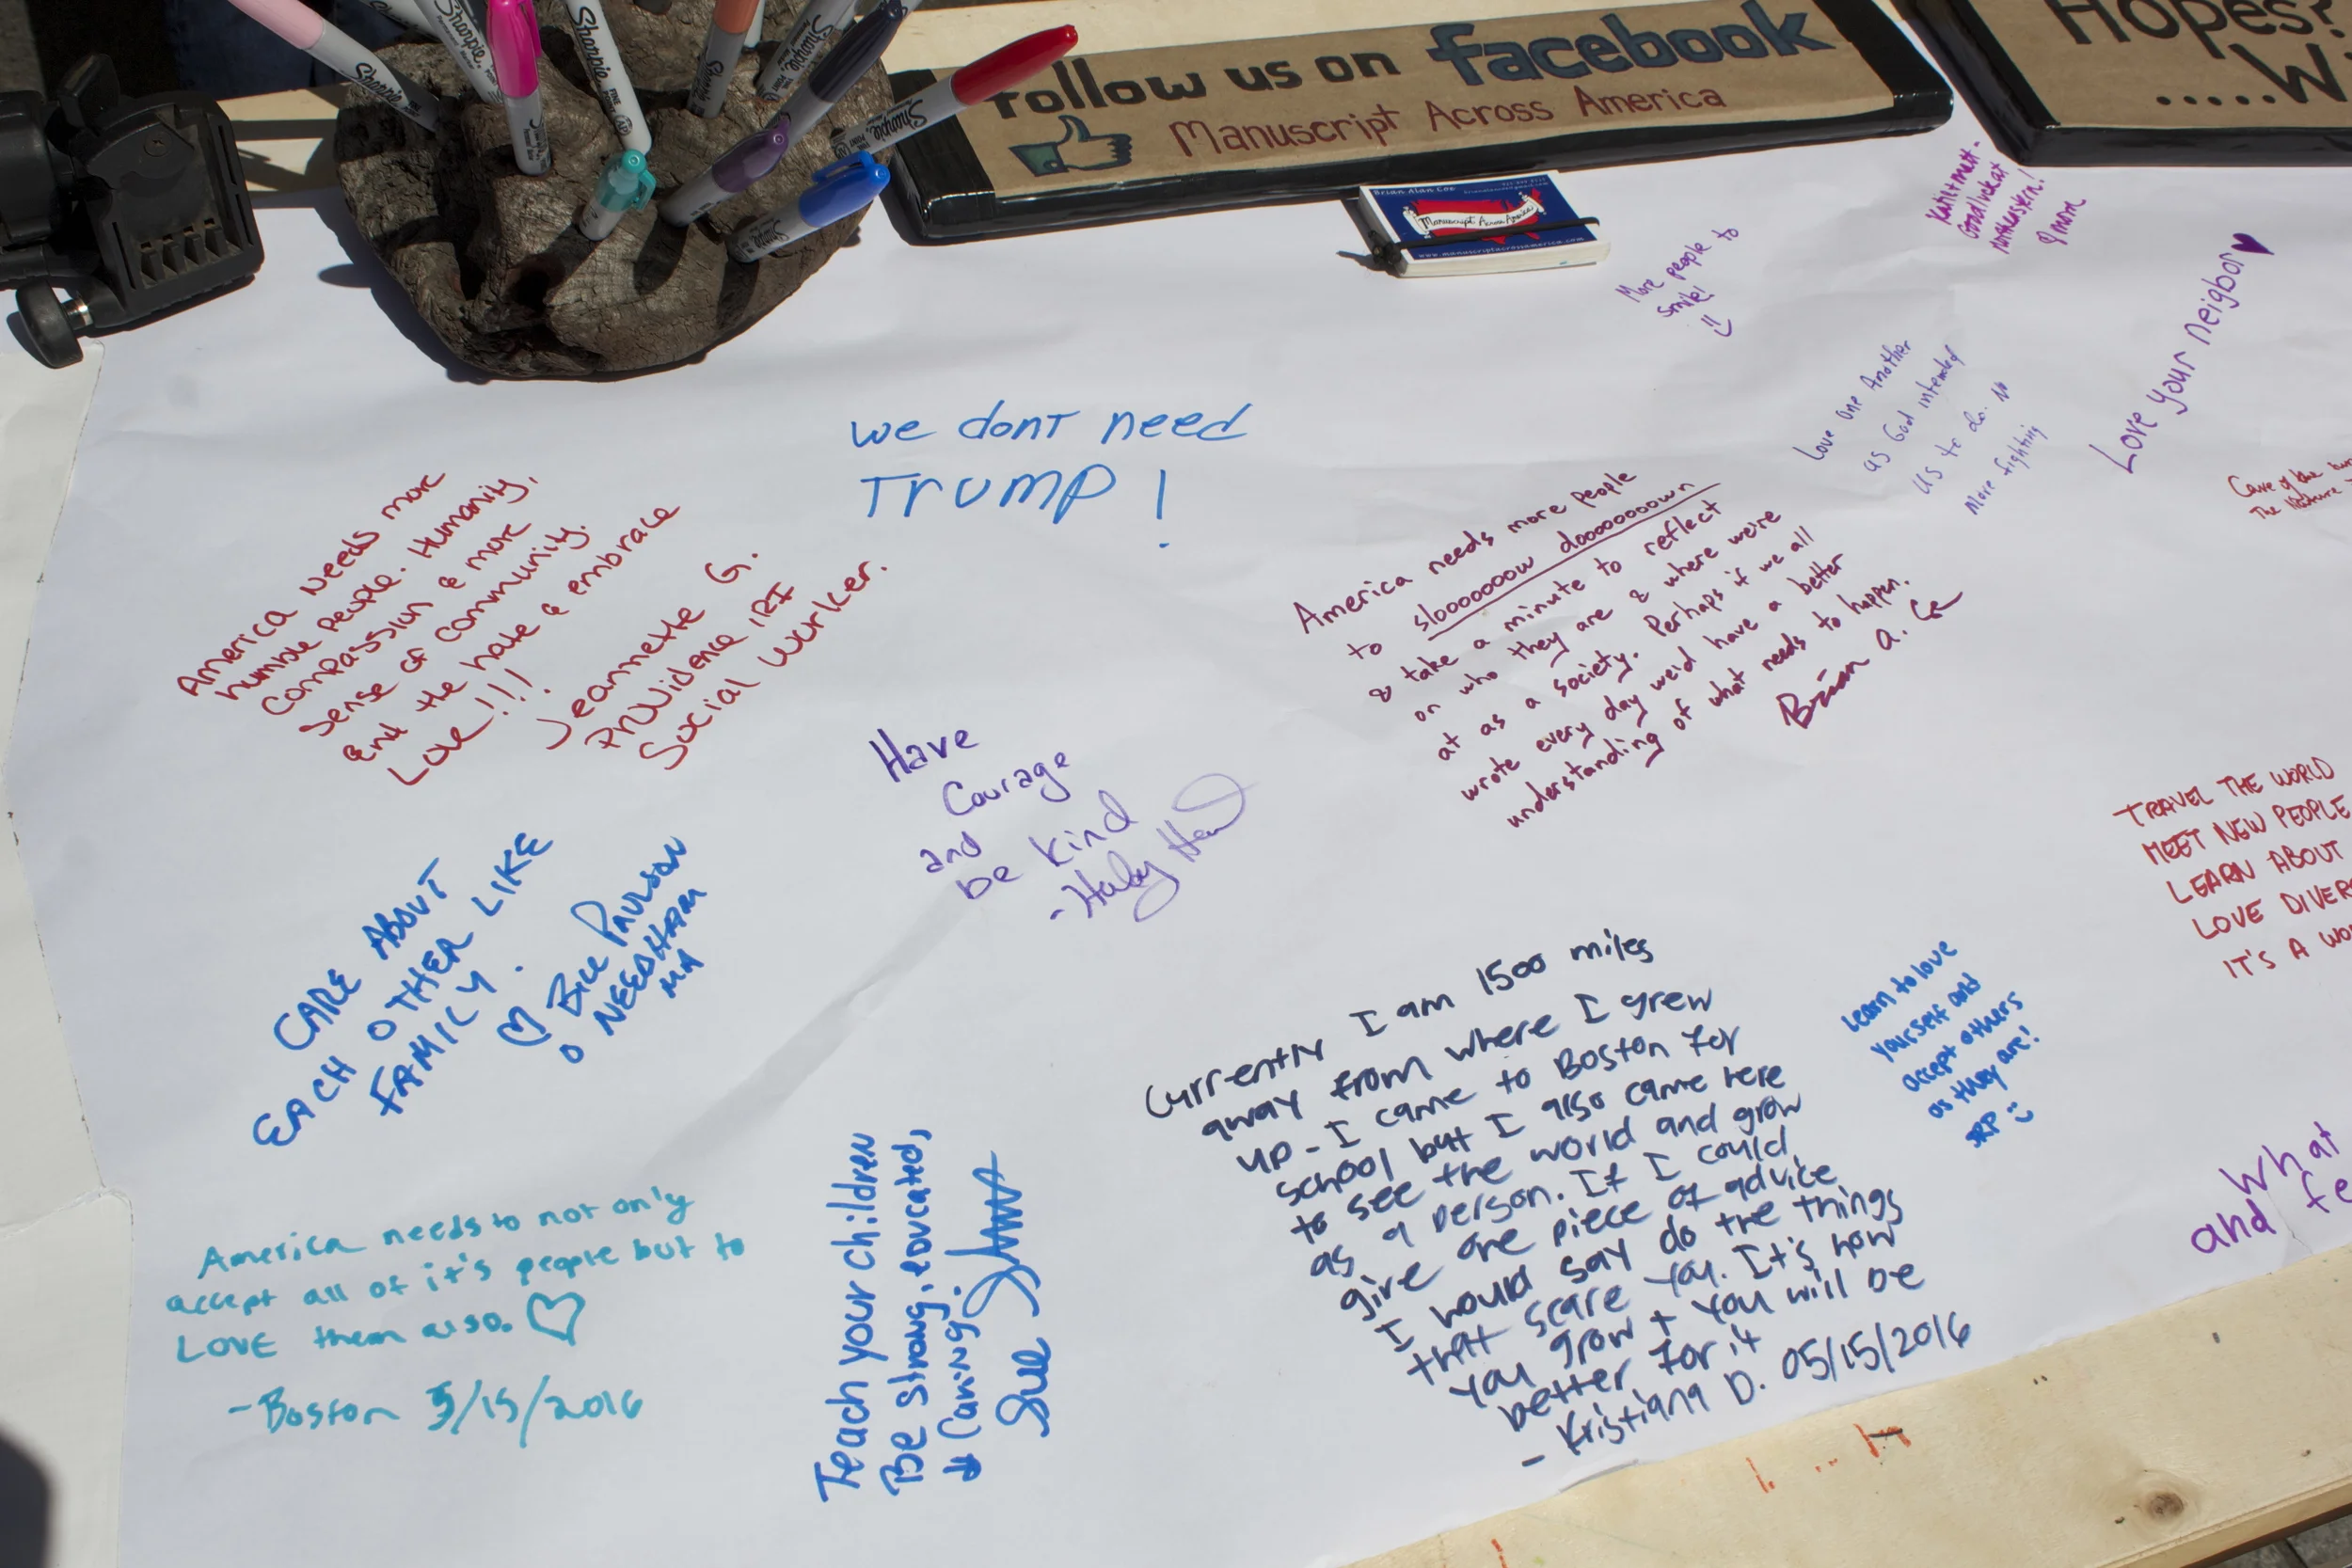 Sharpie
Sharpie
Sharpie
FINE
Sharpie
Sharpie
Sharpie
Sharpie
Follow us on facebook
Manuscript Across America
Hopes?
.....Wi
Brian Alan Cox
Manuscript Across America
www.manuscriptacrossamerica.com
Good luck at
northeastern!
& more
More people to
smile!
Love your neighbor
Love one Another
as God intended
us to do. N
More fighting
Care of the
The Nature
We dont need
Trump!
America needs more
humble people. Humanity,
compassion & more
sense of community.
End the hate & embrace
Love!!!
Jeannette G.
Providence, RI
Social Worker.
America needs more people
to slooooooow dooooooown
& take a minute to reflect
on who they are & where we're
at as a society. Perhaps if we all
wrote every day we'd have a better
understanding of what needs to happen.
Brian A. Cox
Have
Courage
and
be kind
TRAVEL THE WORLD
MEET NEW PEOPLE
LEARN ABOUT
LOVE DIVERS
IT'S A WO
CARE ABOUT
EACH OTHER LIKE
FAMILY.
BILL PAULSON
NEEDHAM
MA
Currently I am 1500 miles
away from where I grew
up - I came to Boston for
school but I also came here
to see the world and grow
as a person. If I could
give one piece of advice
I would say do the things
that scare you. It's how
you grow + you will be
better for it
- Kristiana D. 05/15/2016
Learn to love
yourself and
accept others
as they are!
SRP
What
and fe
America needs to not only
accept all of it's people but to
LOVE them also.
- Boston 5/15/2016
Teach your children
Be strong, educated,
& Caring.
Sue